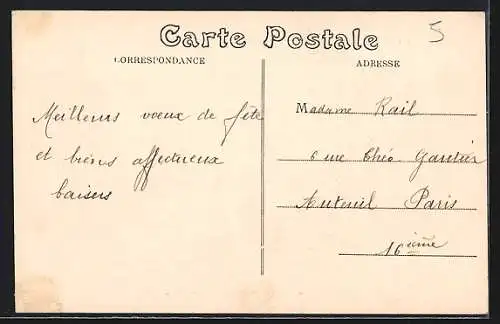 Carte Postale
5
CORRESPONDANCE
ADRESSE
Meilleurs voeux de fête
et biens affectueux
baisers
Madame Rail
6 rue Théo Gautier
Auteuil Paris
16ème